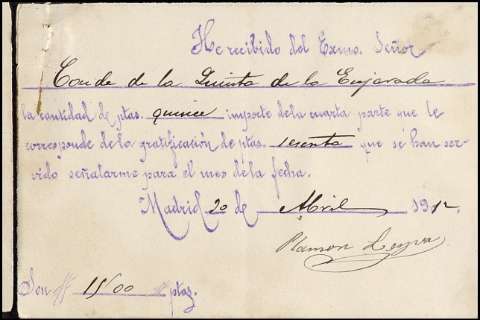 He recibido del Exmo. Señor
Conde de la Quinta de la Enjarada
la cantidad de ptas. quince importe de la cuarta parte que le
corresponde de la gratificación de ptas. sesenta que se han ser-
vido señalarme para el mes de la fecha.
Madrid 20 de Abril 1912.
Ramon Leyva
Son 15'00 ptas.